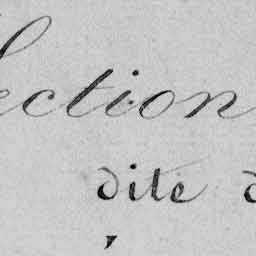 Section
dite d